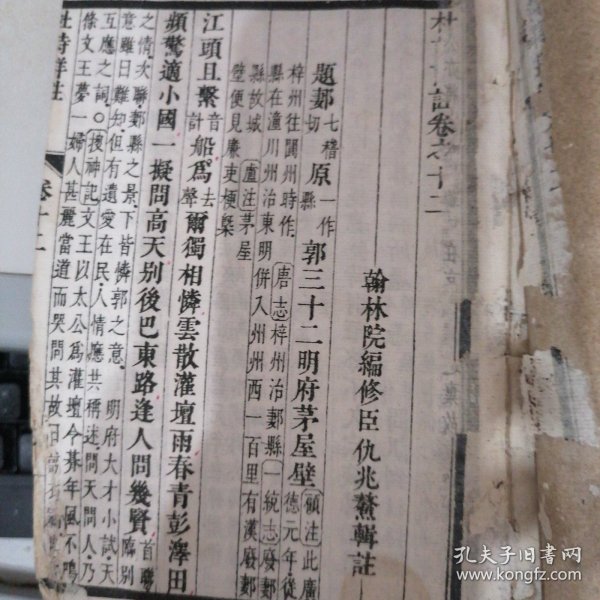 註卷之十二
翰林院編修臣仇兆鰲輯註
題郪七稽切原一作縣郭三十二明府茅屋壁顧注此廣德元年從
梓州往閬州時作唐志梓州治郪縣一統志廢郪
縣在潼川州治東明併入州州西一百里有漢廢郪
縣故城盧注茅屋
壁便見廉吏梗槩
江頭且繫音計船爲去聲爾獨相憐雲散灌壇雨春青彭澤田
頻驚適小國一擬問高天别後巴東路逢人問幾賢首聯臨别
之情次聯郪縣之景下皆憐郭之意明府大才小試天
意雖曰難知但有遺愛在民人情應共稱述問天問人乃
互應之詞○搜神記文王以太公爲灌壇令朞年風不鳴
條文王夢一婦人甚麗當道而哭問其故曰當
杜詩詳註 卷十二
孔夫子旧书网
www.kongfz.com